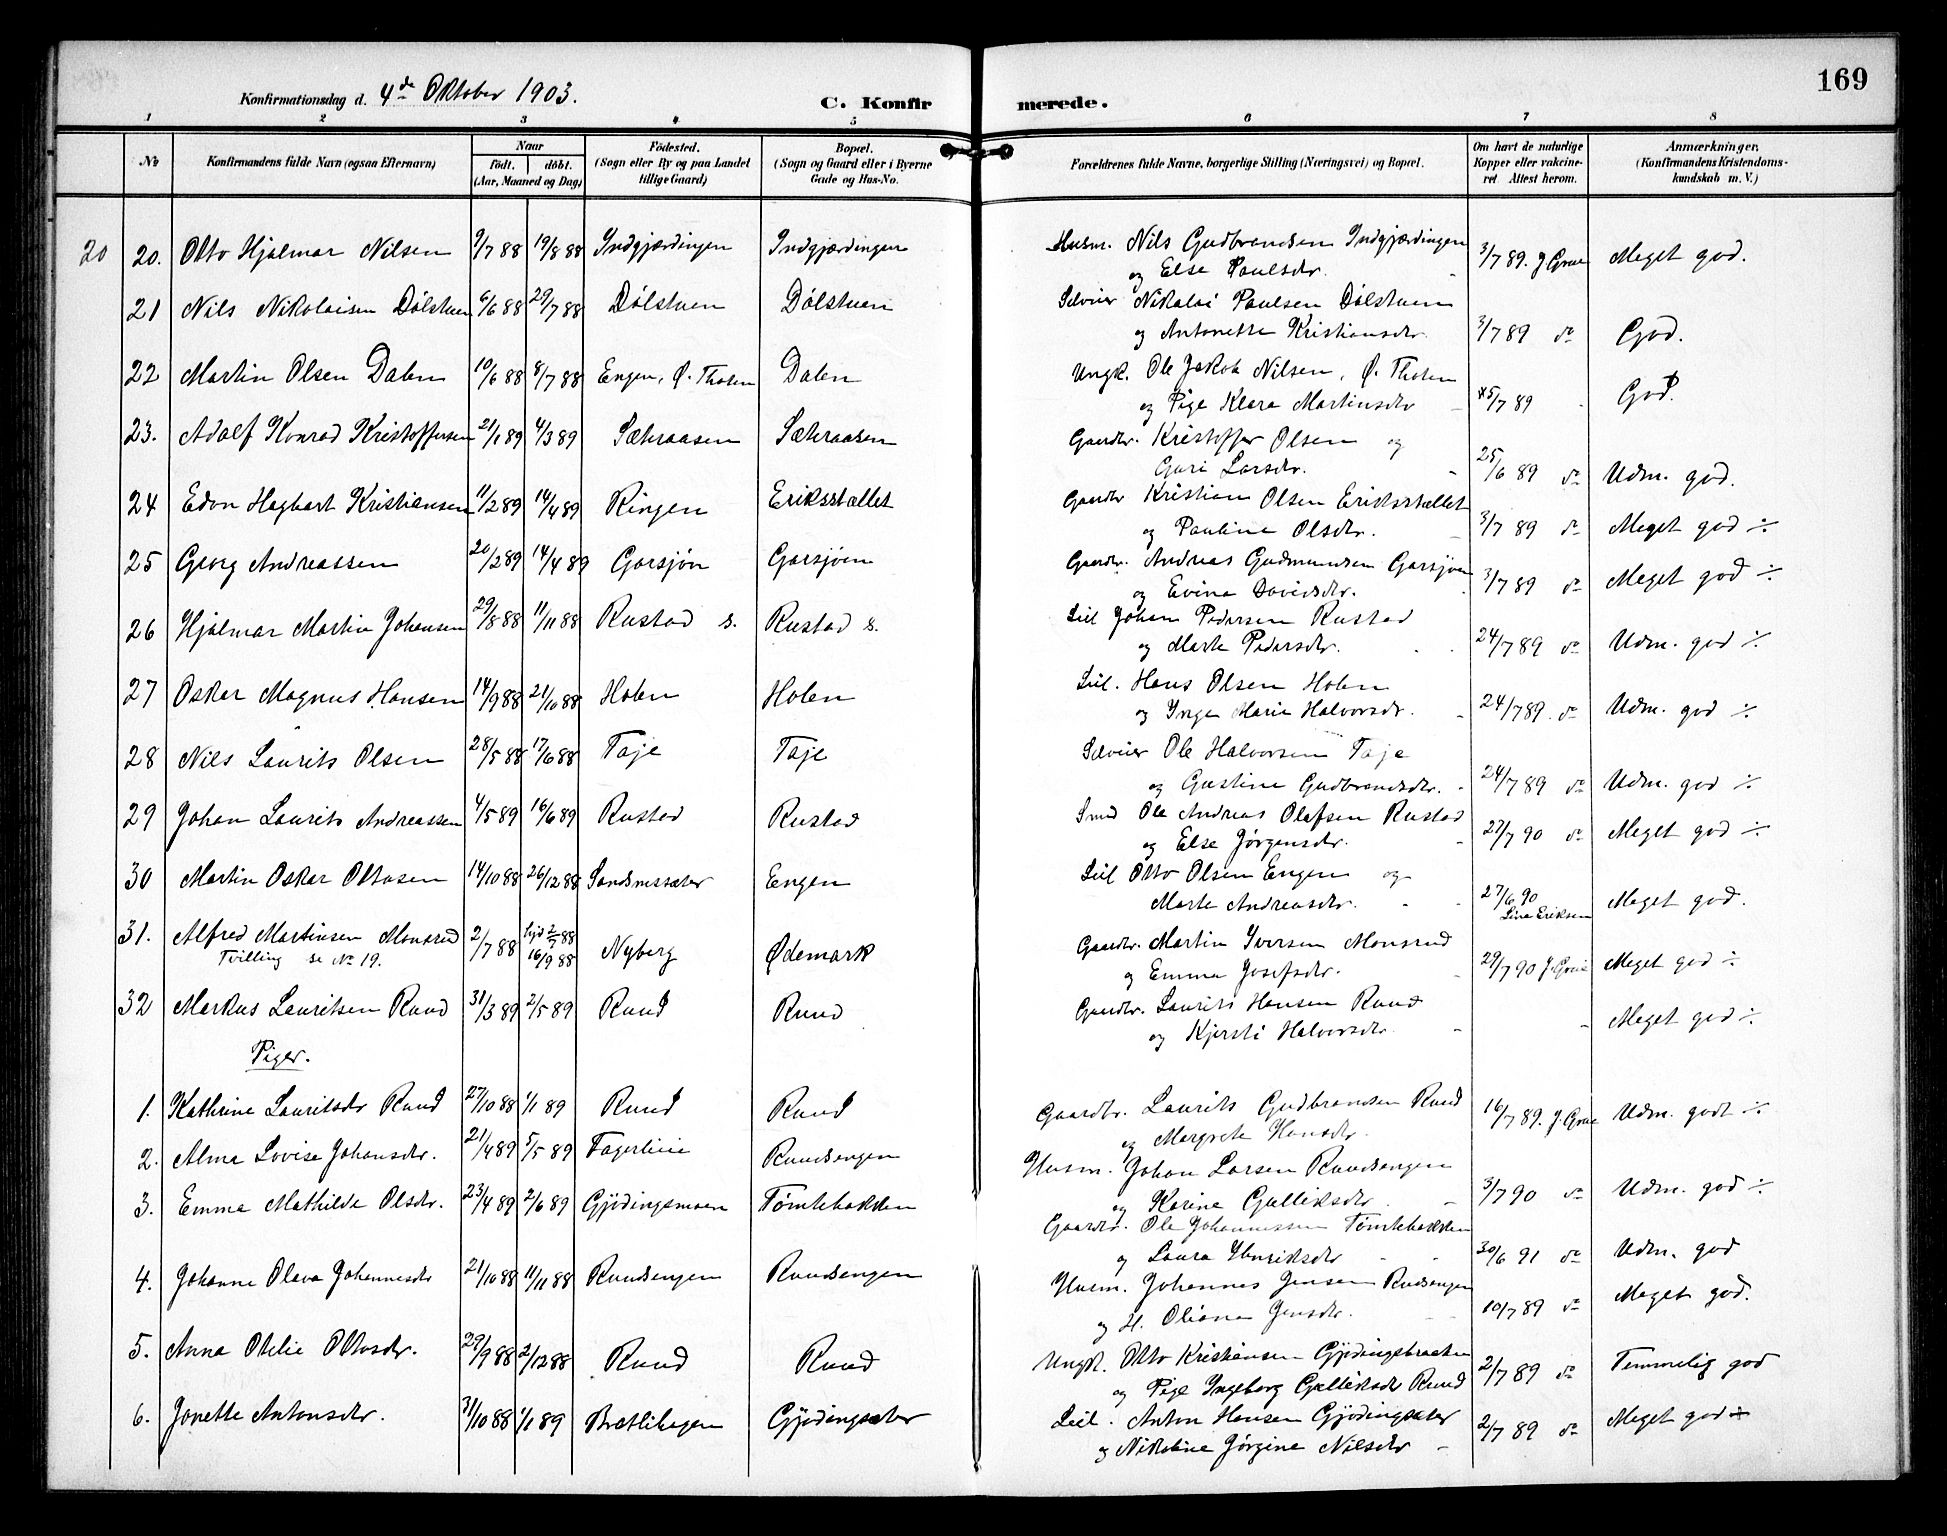 169
Konfirmationsdag d. 4de Oktober 1903. C. Konfirmerede.
1 2 3 4 5 6 7 8
No Konfirmandens fulde Navn (ogsaa Efternavn) Naar födt. döbt. (Aar, Maaned og Dag) Födested. (Sogn eller By og paa Landet tillige Gaard) Bopæl. (Sogn og Gaard eller i Byerne Gade og Hus-No. Forældrenes fulde Navne, borgerlige Stilling (Næringsvei) og Bopæl. Om havt de naturlige Kopper eller vakcineret Attest herom. Anmærkninger. (Konfirmandens Kristendomskundskab m. V.)
20 20. Otto Hjalmar Nilsen 9/7 88 19/8 88 Indgjærdingen Indgjærdingen Husm. Nils Gudbrandsen Indgjærdingen 3/7 89. J. Grue Meget god.
og Else Paulsdtr.
21 Nils Nikolaisen Dølstuen 6/6 88 29/7 88 Dølstuen Dølstuen Selveier Nikolai Paulsen Dølstuen
og Antonette Kristiansdtr. 3/7 89 do God.
22 Martin Olsen Dalen 10/6 88 8/7 88 Engen, Ø. Thoten Dalen Ungk. Ole Jakob Nilsen, Ø. Thoten
og Pige Klara Martinsdtr 15/7 89 God.
23. Adolf Konrad Kristoffersen 21/1 89 4/3 89 Sætraasen Sætraasen Gaardbr. Kristoffer Olsen og
Guri Larsdtr. 25/6 89 do Udm. god.
24 Edvn Hagbart Kristiansen 11/2 89 14/4 89 Ringen Eriksstællet Gaardbr Kristian Olsen Eriksstællet
og Pauline Olsdtr. 3/7 89 do Meget god ÷
25 Georg Andreassen 20/2 89 14/4 89 Garsjøn Garsjøen Gaardbr. Andreas Gudmundsen Garsjøen
og Evina Davidsdtr. 3/7 89 do Meget god ÷
26 Hjalmar Martin Johansen 29/8 88 11/11 88 Rustad s. Rustad s. Leil Johan Pedersen Rustad
og Marte Pedersdtr. 24/7 89 do Udm. god ÷
27 Oskar Magnus Hansen 14/9 88 21/10 88 Holen Holen Leil. Hans Olsen Holen
og Inge Marie Halvorsdtr. 24/7 89. do Udm. god ÷
28 Nils Laurits Olsen 28/5 88 17/6 88 Taje Taje Selveier Ole Halvorsen Taje
og Gustine Gudbrandsdtr. 24/7 89 do Udm. god ÷
29 Johan Laurits Andreassen 4/5 89 16/6 89 Rustad Rustad Smed Ole Andreas Olafsen Rustad
og Else Jørgensdtr. 27/7 90 do Meget god ÷
30 Martin Oskar Ottosen 14/10 88 26/12 88 Sandnessæter Engen Leil Otto Olsen Engen og
Marte Andreasdtr. 27/6 90 Lina Eriksen Meget god.
31. Alfred Martinsen Monsrud 2/7 88 hjd 2/7 88 16/9 88 Nyberg Ødemark Gaardbr. Martin Iversen Monsrud
Tvilling se No 19. og Emma Josefsdtr. 29/7 90 J. Grue Meget god ÷
32 Markus Lauritsen Ruud 31/3 89 2/5 89 Ruud Ruud Gaardbr. Laurits Hansen Ruud
og Kjersti Halvorsdtr. Meget god ÷
Piger.
1. Kathrine Lauritsdtr Ruud 27/10 88 1/1 89 Ruud Ruud Gaardbr. Laurits Gudbrandsen Ruud 16/7 89. J. Grue Udm. godt ÷
og Margrete Hansdtr.
2. Alma Lovise Johansdtr. 21/4 89 5/5 89 Fagerlien Ruudsengen Husm. Johan Larsen Ruudsengen
og Karine Gulliksdtr. 3/7 90 do Udm. god ÷
3. Emma Mathilde Olsdtr. 23/4 89 2/6 89 Gjødingsmoen Tømtebakken Gaardbr. Ole Johannessen Tømtebakken
og Laura Henriksdtr 30/6 91 do Udm. god
4. Johanne Olava Johannesdtr 21/10 88 11/11 88 Ruudsengen Ruudsengen Husm. Johannes Jensen Rudsengen
og H. Oliana Jensdtr. 10/7 89 do Meget god.
5. Anna Otilie Ottosdtr. 29/9 88 2/12 88 Ruud Ruud Ungk. Otto Kristiansen Gjødingsbraaten
og Pige Ingeborg Gulliksdtr Ruud 2/7 89 do Temmelig god
6. Jonette Antonsdtr. 31/10 88 1/1 89 Brætlihagen Gjødingsæter Leil. Anton Hansen Gjødingsæter
og Nikoline Jørgine Nilsdtr 2/7 89 do Meget god ÷